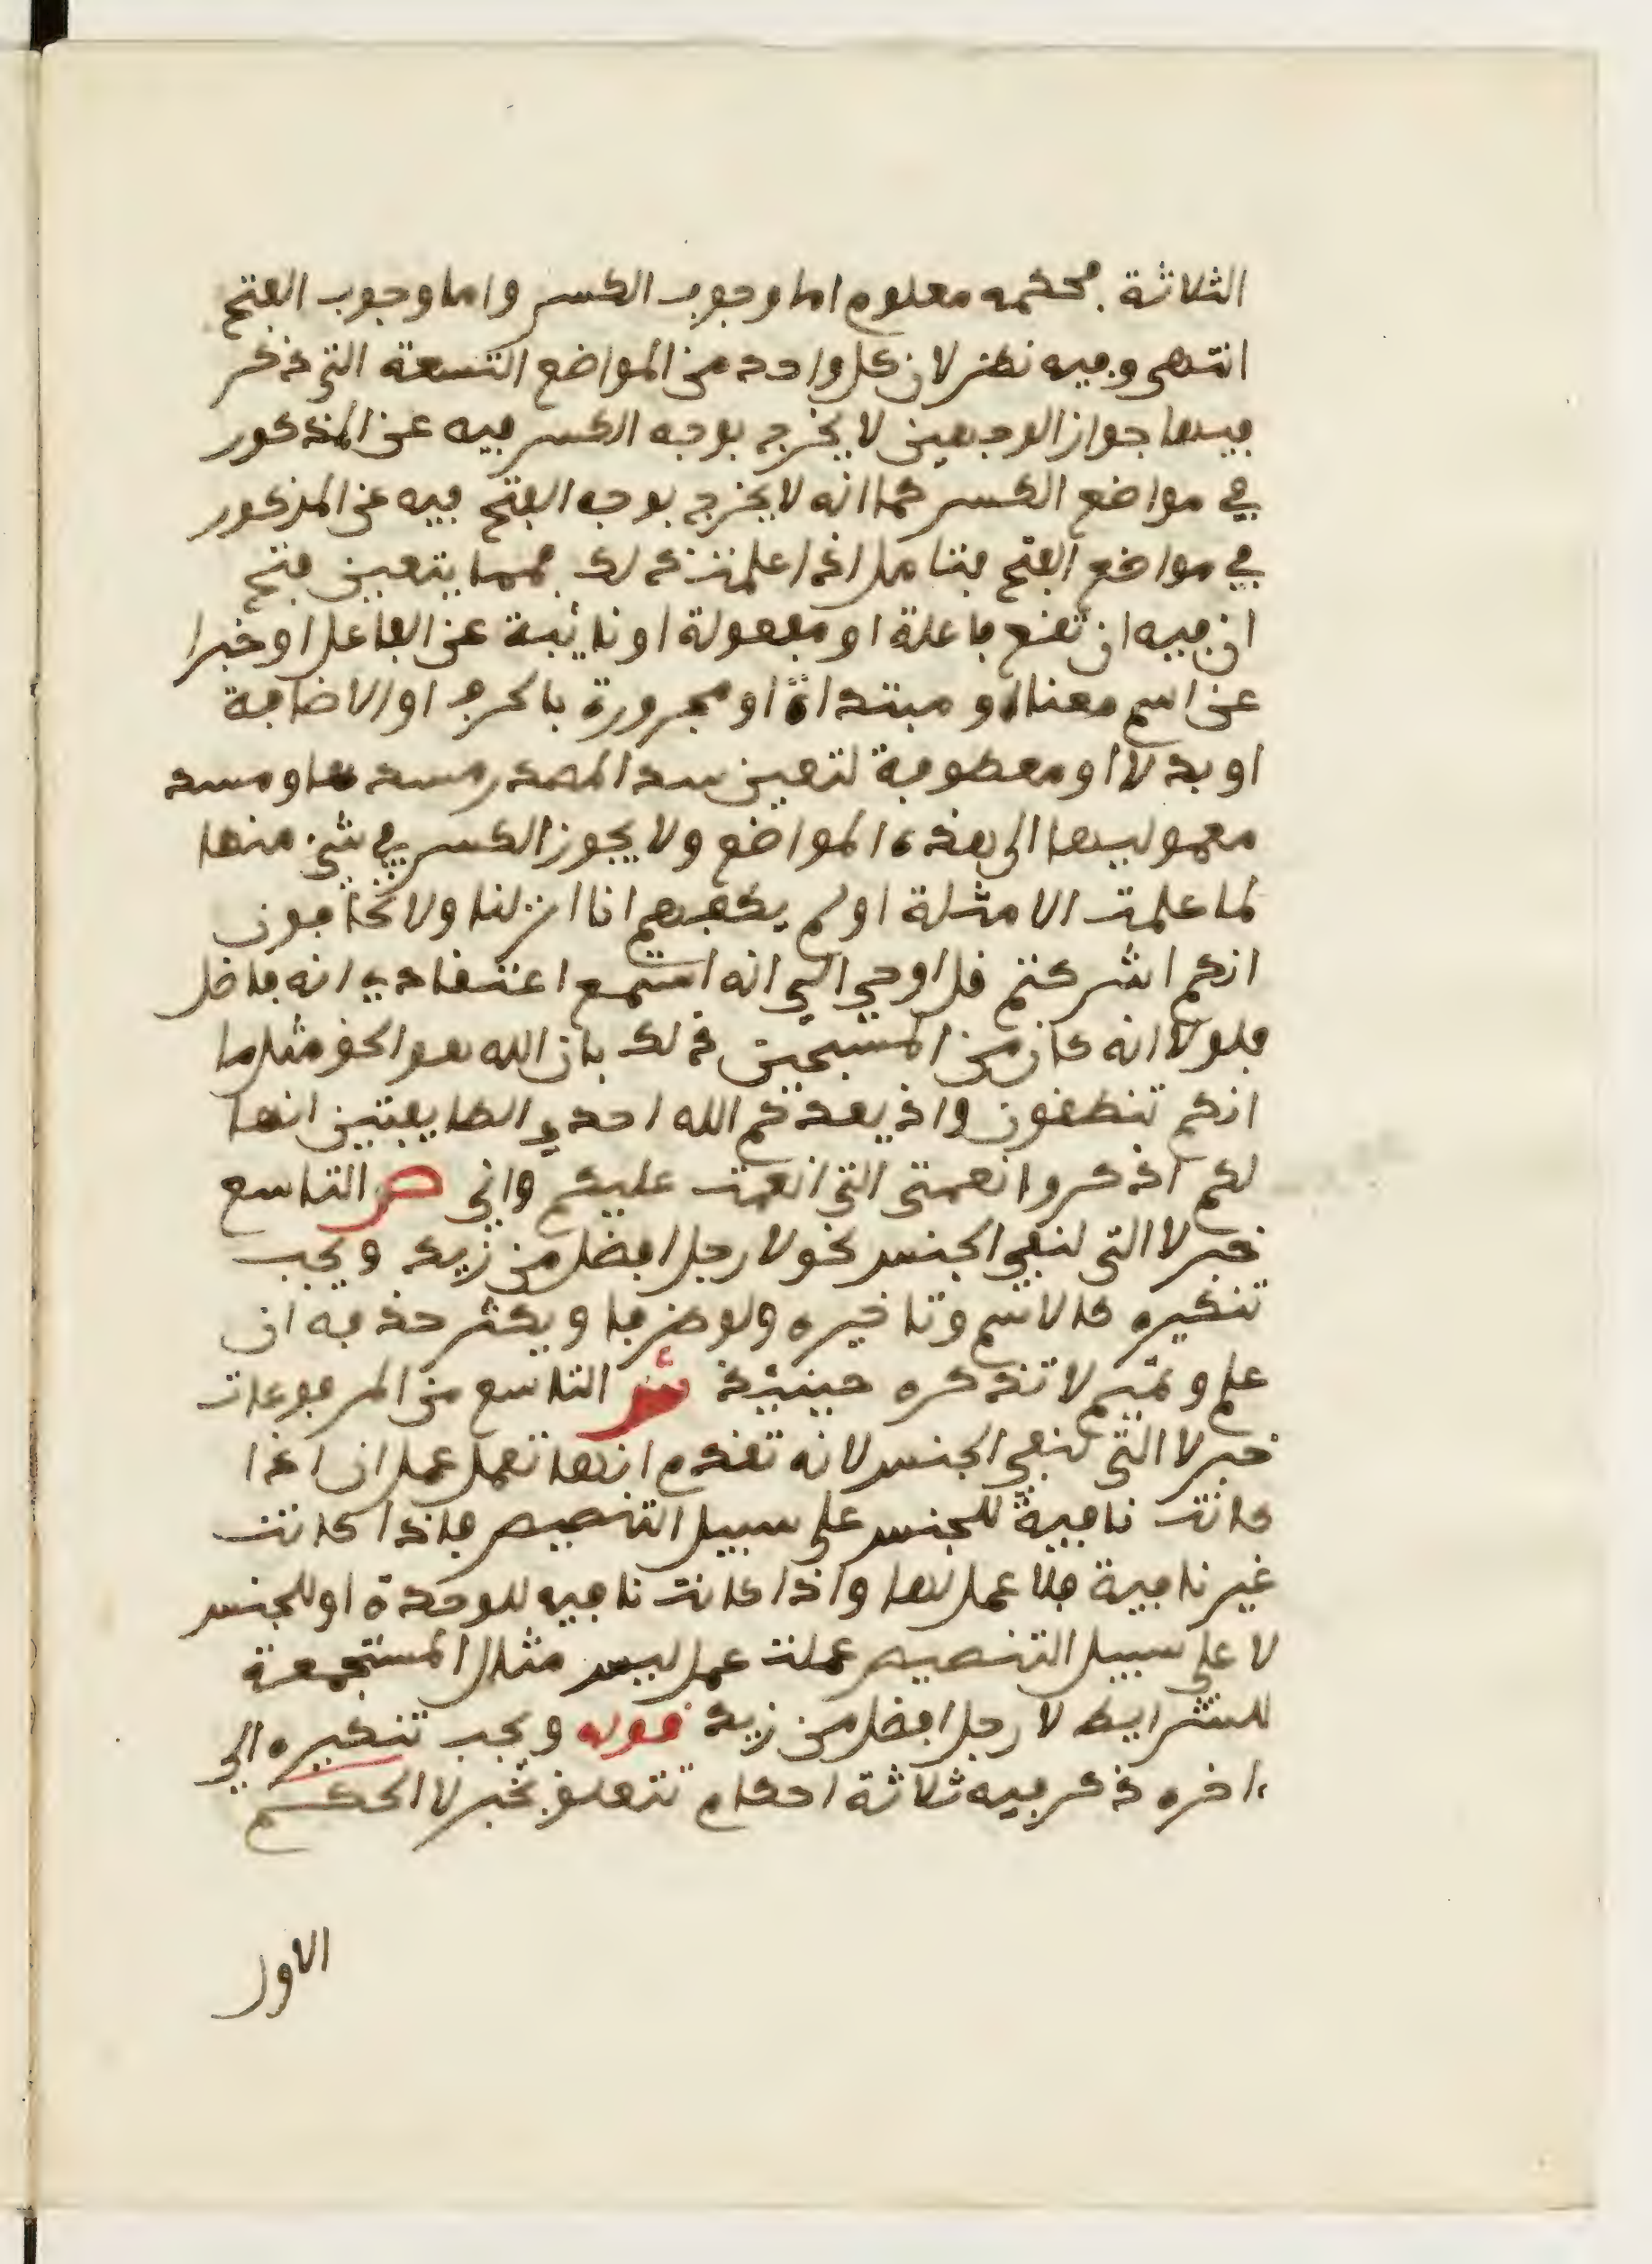 الثلاثة فحكمه معلوم اما وجوب الكسر واما وجوب الفتح
انتهى وفيه نظر لان كل واحد من المواضع التسعة التي ذكر
فيها جواز الوجهين لا يخرج بوجه الكسر فيه عن المذكور
في مواضع الكسر كما انه لا يخرج بوجه الفتح فيه عن المذكور
في مواضع الفتح فتامل اذا علمت ذلك فمما يتعين فتح
ان فيه ان تقع فاعلة او مفعولة او نائبة عن الفاعل او خبرا
عن اسم معنا او مبتداة او مجرورة بالحرف او الاضافة
او بدلا او معطوفة لتعين سد المصدر مسدها ومسد
معموليها الى هذه المواضع ولا يجوز الكسر في شيء منها
لما علمت الامثلة اولم يكفهم انا انزلنا ولا تخافون
انكم اشركتم قل اوحي الي انه استمع اعتقادي انه فاضل
فلولا انه كان من المسبحين ذلك بان الله هو الحق مثل ما
انكم تنطقون واذ يعدكم الله احدى الطايفتين انها
لكم اذكروا نعمتي التي انعمت عليكم واني ص التاسع
خبر لا التي لنفي الجنس نحو لا رجل افضل من زيد ويجب
تنكيره كالاسم وتاخيره ولو ظرفا ويكثر حذفه ان
علم وتميم لا تذكره حينيذ ش التاسع من المرفوعات
خبر لا التي لنفي الجنس لانه تقدم انها تعمل عمل ان اذا
كانت نافية للجنس على سبيل التنصيص فاذا كانت
غير نافية فلا عمل لها واذا كانت نافيه للوحدة او للجنس
لا على سبيل التنصيص عملت عمل ليس مثال المستجمعة
للشرايط لا رجل افضل من زيد قوله ويجب تنكيره الى
ءاخره ذكر فيه ثلاثة احكام تتعلق بخبر لا الحكم
الاول